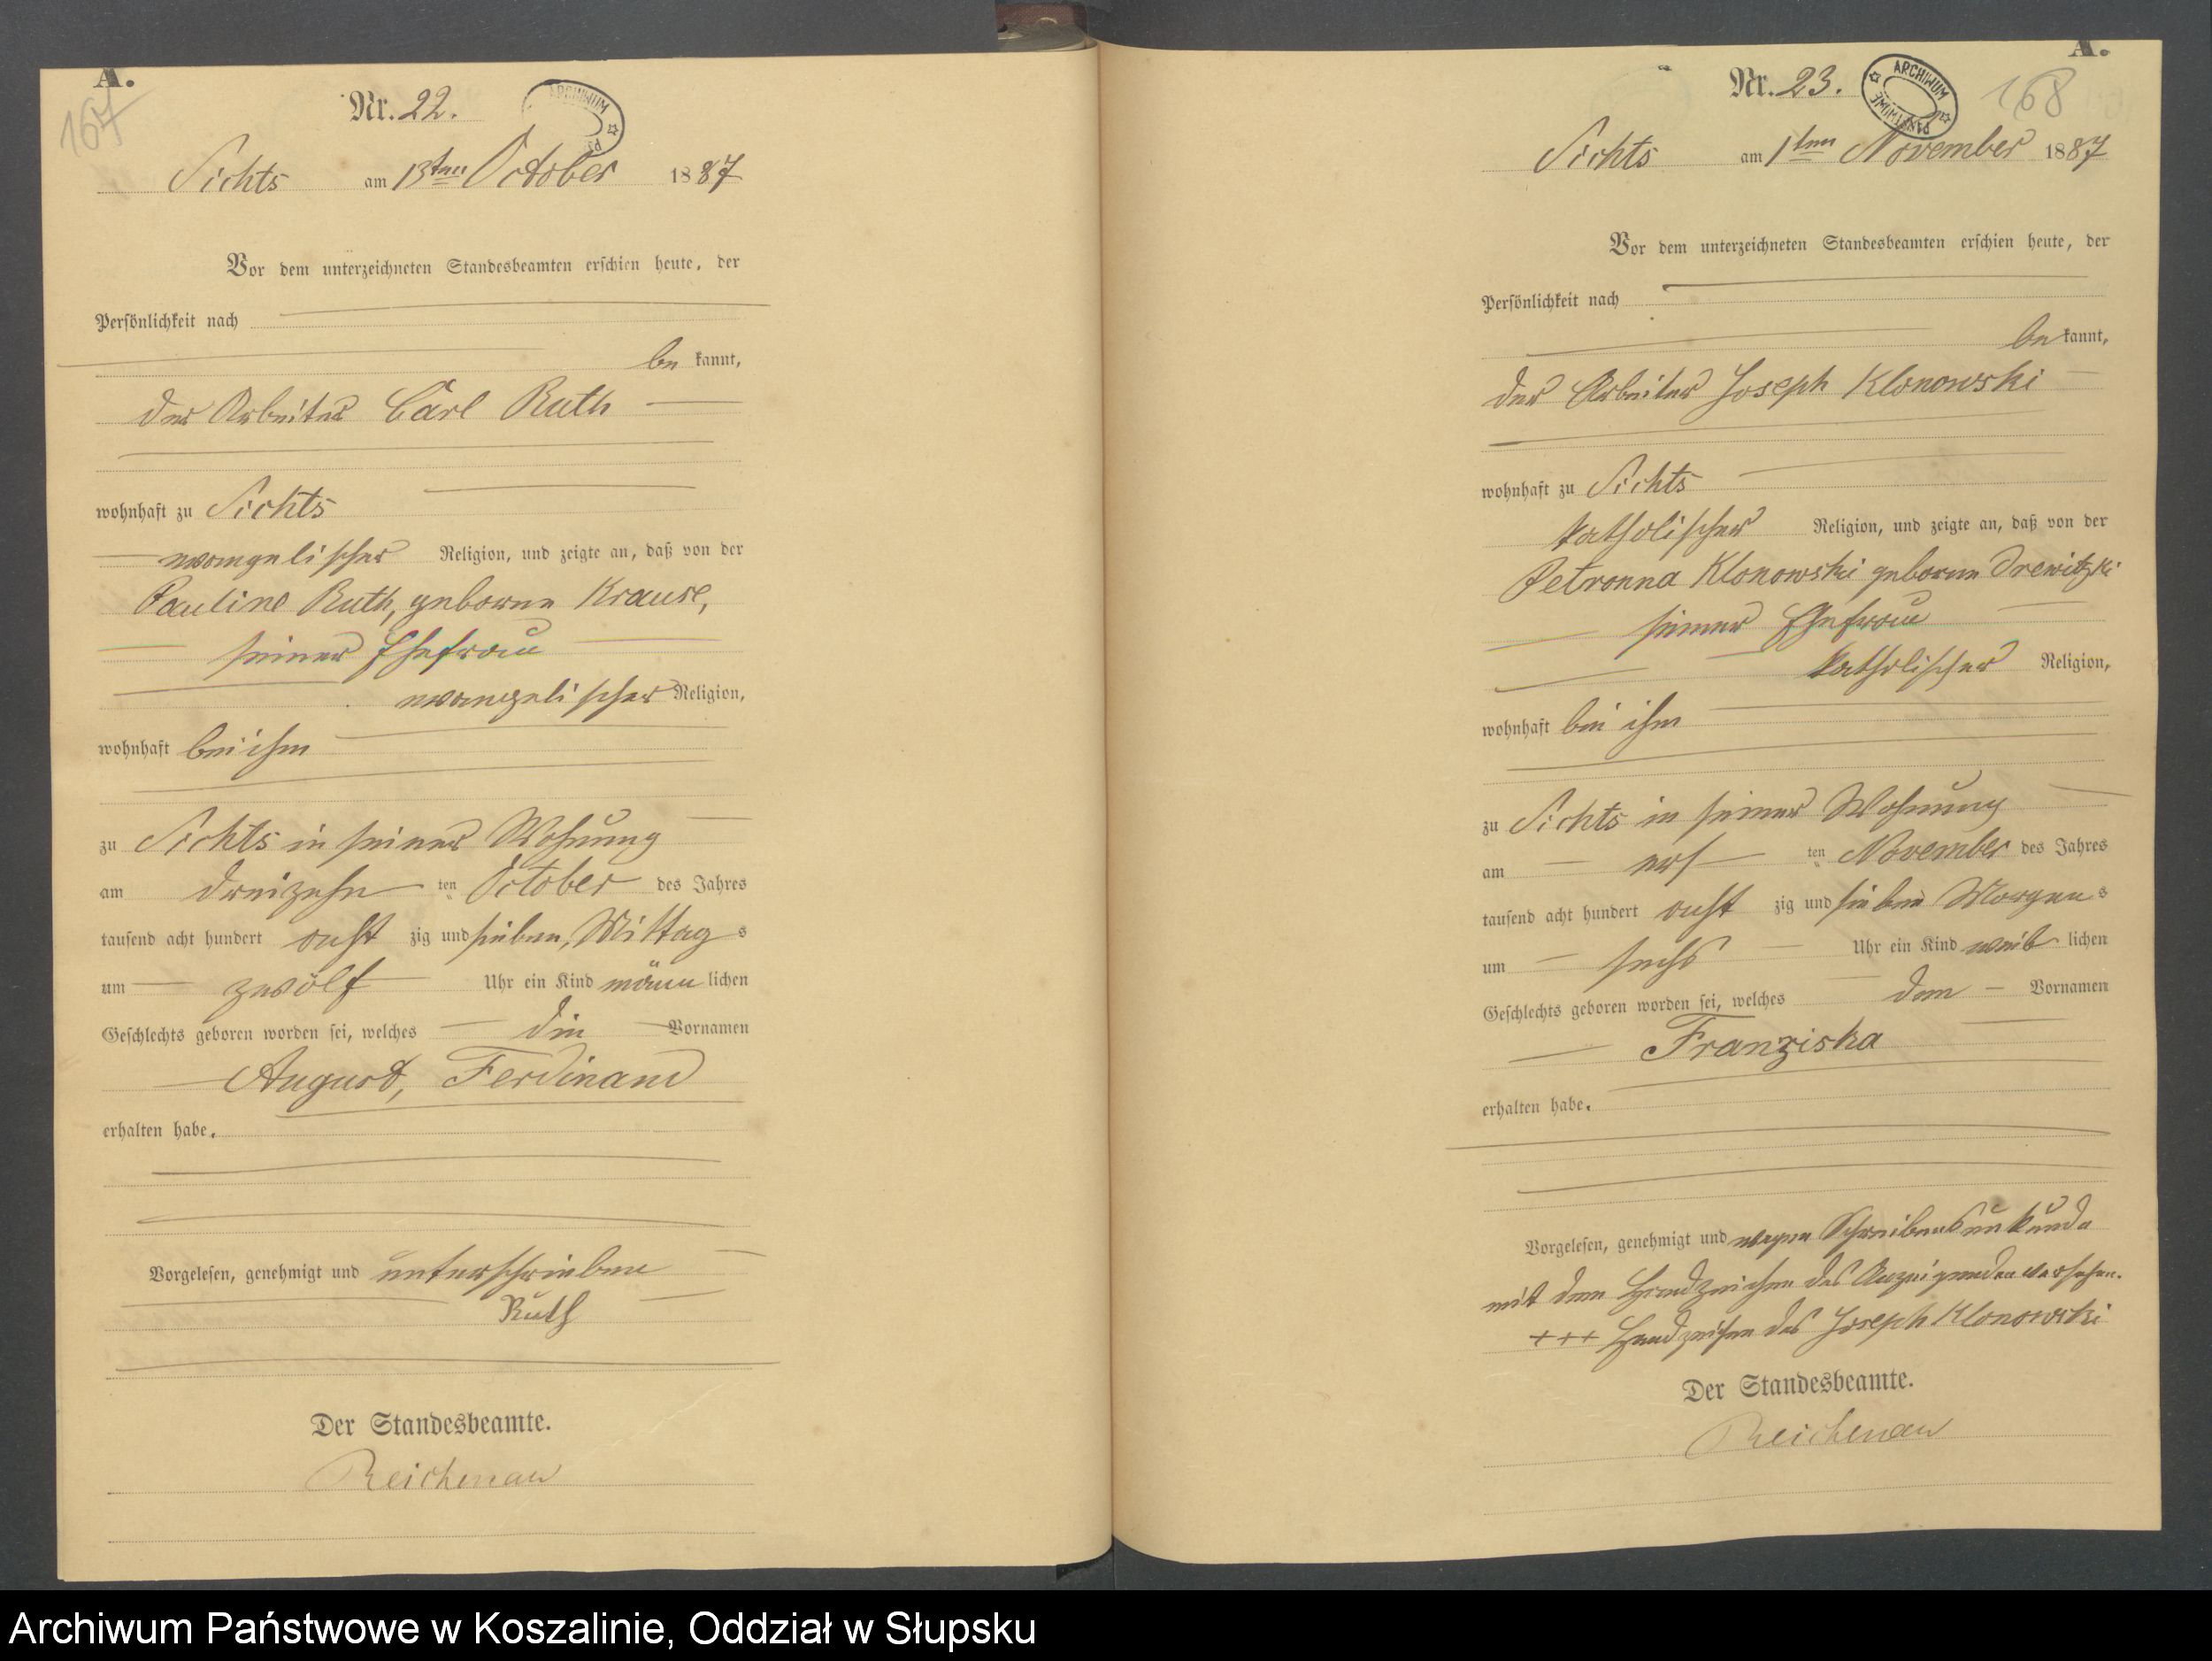 A.
167
Nr. 22.
ARCHIWUM
Sichts am 13ten October 1887
Vor dem unterzeichneten Standesbeamten erschien heute, der
Persönlichkeit nach
be kannt,
der Arbeiter Carl Ruth
wohnhaft zu Sichts
evangelischer Religion, und zeigte an, daß von der
Pauline Ruth, geborne Krause,
seiner Ehefrau
evangelischer Religion,
wohnhaft bei ihm
zu Sichts in seiner Wohnung
am dreizehn ten October des Jahres
tausend acht hundert acht zig und sieben, Mittag s
um zwölf Uhr ein Kind männ lichen
Geschlechts geboren worden sei, welches die Vornamen
August, Ferdinand
erhalten habe.
Vorgelesen, genehmigt und unterschrieben
Ruth
Der Standesbeamte.
Reichenau
A.
168
Nr. 23.
ARCHIWUM PAŃSTWOWE
Sichts am 1ten November 1887
Vor dem unterzeichneten Standesbeamten erschien heute, der
Persönlichkeit nach
be kannt,
der Arbeiter Joseph Klonowski
wohnhaft zu Sichts
katholischer Religion, und zeigte an, daß von der
Petronna Klonowski geborne Drewitzki
seiner Ehefrau
katholischer Religion,
wohnhaft bei ihm
zu Sichts in seiner Wohnung
am ers ten November des Jahres
tausend acht hundert acht zig und sieben Morgen s
um sechs Uhr ein Kind weib lichen
Geschlechts geboren worden sei, welches den Vornamen
Franziska
erhalten habe.
Vorgelesen, genehmigt und wegen Schreibensunkunde
mit dem Handzeichen des Anzeigenden versehen.
+++ Handzeichen des Joseph Klonowski
Der Standesbeamte.
Reichenau
Archiwum Państwowe w Koszalinie, Oddział w Słupsku